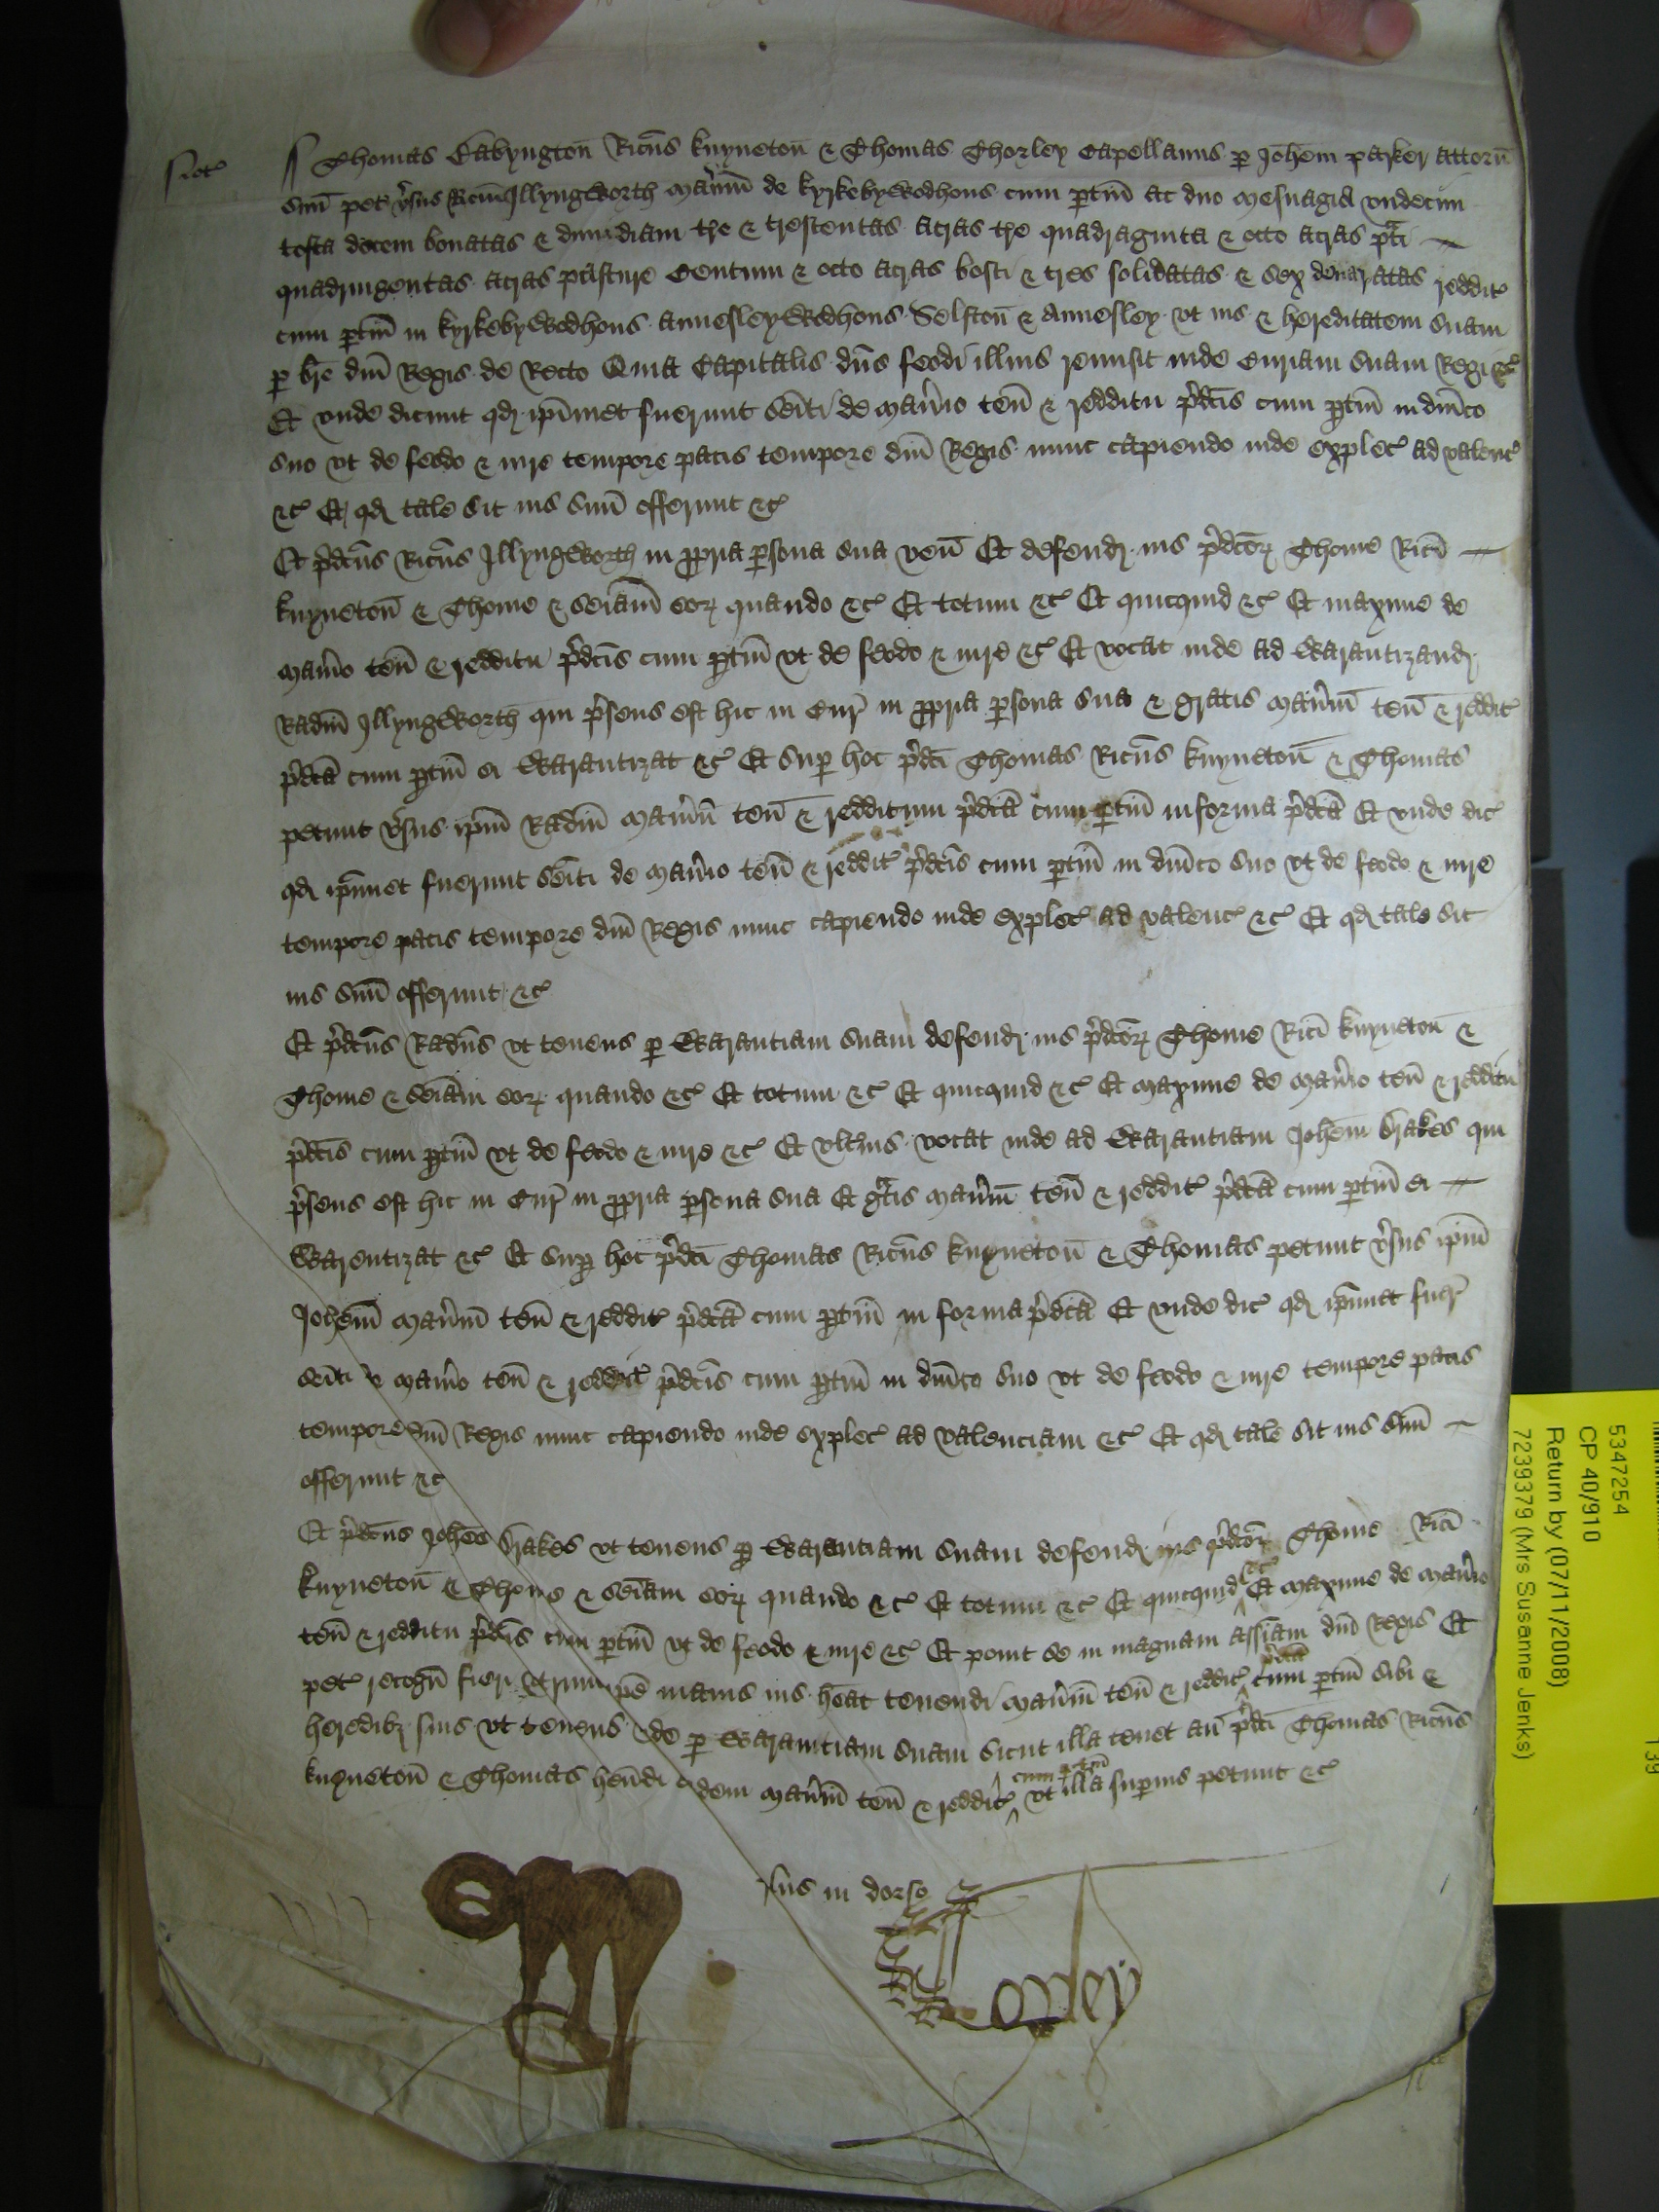 Thomas Babyngton Ricus Knyveton & Thomas Thorley Capellanus p Johem Parker attorn
suu pet vsus Ricm Illyngworth Maniu de Kyrkebywodhous cum ptin ac duo Mesuagia undecim
tofta decem bovatas & dimidiam tre & trescentas acras tre quadraginta & octo acras pti
quadringentas acras pasture Centum & octo acras bosci & tres solidatas & sex denariatas reddit
cum ptin in Kyrkebywodhous Annesleywodhous Selston & Annesley ut ius & hereditatem suam
p bre dni Regis de Recto Quia Capitalis dns feodi illius remisit inde Curiam suam Regi &c
Et unde dicunt qd ipimet fuerunt seiti de Manio ten & redditu pdcis cum ptin in dnico
suo ut de feodo & iure tempore pacis tempore dni Regis nunc capiendo inde explec ad valenc
&c Et qd tale sit ius suu offerunt &c
Et pdcus Ricus Illyngworth in ppria psona sua ven Et defend ius pdcor Thome Rici
Knyveton & Thome & seiam eor quando &c Et totum &c Et quicquid &c Et maxime de
Manio ten & redditu pdcis cum ptin ut de feodo & iure &c Et vocat inde ad Warantizand
Radm Illyngworth qui psens est hic in Cur in ppria psona sua & gratis Maniu ten & reddit
pdca cum ptin ei Warantizat &c Et sup hoc pdci Thomas Ricus Knyveton & Thomas
petunt vsus ipm Radm Maniu ten & redditum pdca cum ptin in forma pdca Et unde dic
qd ipimet fuerunt seiti de Manio ten & reddit pdcis cum ptin in dnico suo ut de feodo & iure
tempore pacis tempore dni Regis nunc capiendo inde explec ad valenc &c Et qd tale sit
ius suu offerunt &c
Et pdcus Radus ut tenens p Warantiam suam defend ius pdcor Thome Rici Knyveton &
Thome & seiam eor quando &c Et totum &c Et quicquid &c Et maxime de Manio ten & redditu
pdcis cum ptin ut de feodo & iure &c Et ultius vocat inde ad Warantiam Johem Brakes qui
psens est hic in Cur in ppria psona sua Et gratis Maniu ten & reddit pdca cum ptin ei
Warentizat &c Et sup hoc pdci Thomas Ricus Knyveton & Thomas petunt vsus ipm
Johem Maniu ten & reddit pdca cum ptin in forma pdca Et unde dic qd ipimet fuer
seiti de Manio ten & reddit pdcis cum ptin in dnico suo ut de feodo & iure tempore pacis
tempore dni Regis nunc capiendo inde explec ad valenciam &c Et qd tale sit ius suu
offerunt &c
Et pdcus Johes Brakes ut tenens p Warantiam suam defend ius pdcor Thome Rici
Knyveton & Thome & seiam eor quando &c Et totum &c Et quicquid &c Et maxime de Manio
ten & redditu pdcis cum ptin ut de feodo & iure &c Et ponit se in magnam assiam dni Regis Et
pet recogn fieri utrum ipe maius ius heat tenendi Maniu ten & reddit pdca cum ptin sibi &
heredibz suis ut tenens inde p Warantiam suam sicut illa tenet an pdci Thomas Ricus
Knyveton & Thomas hendi eadem Maniu ten & reddit cum ptin ut illa supius petunt &c
plus in dorso
Rowley
5347254
CP 40/910
Return by (07/11/2008)
7239379 (Mrs Susanne Jenks)